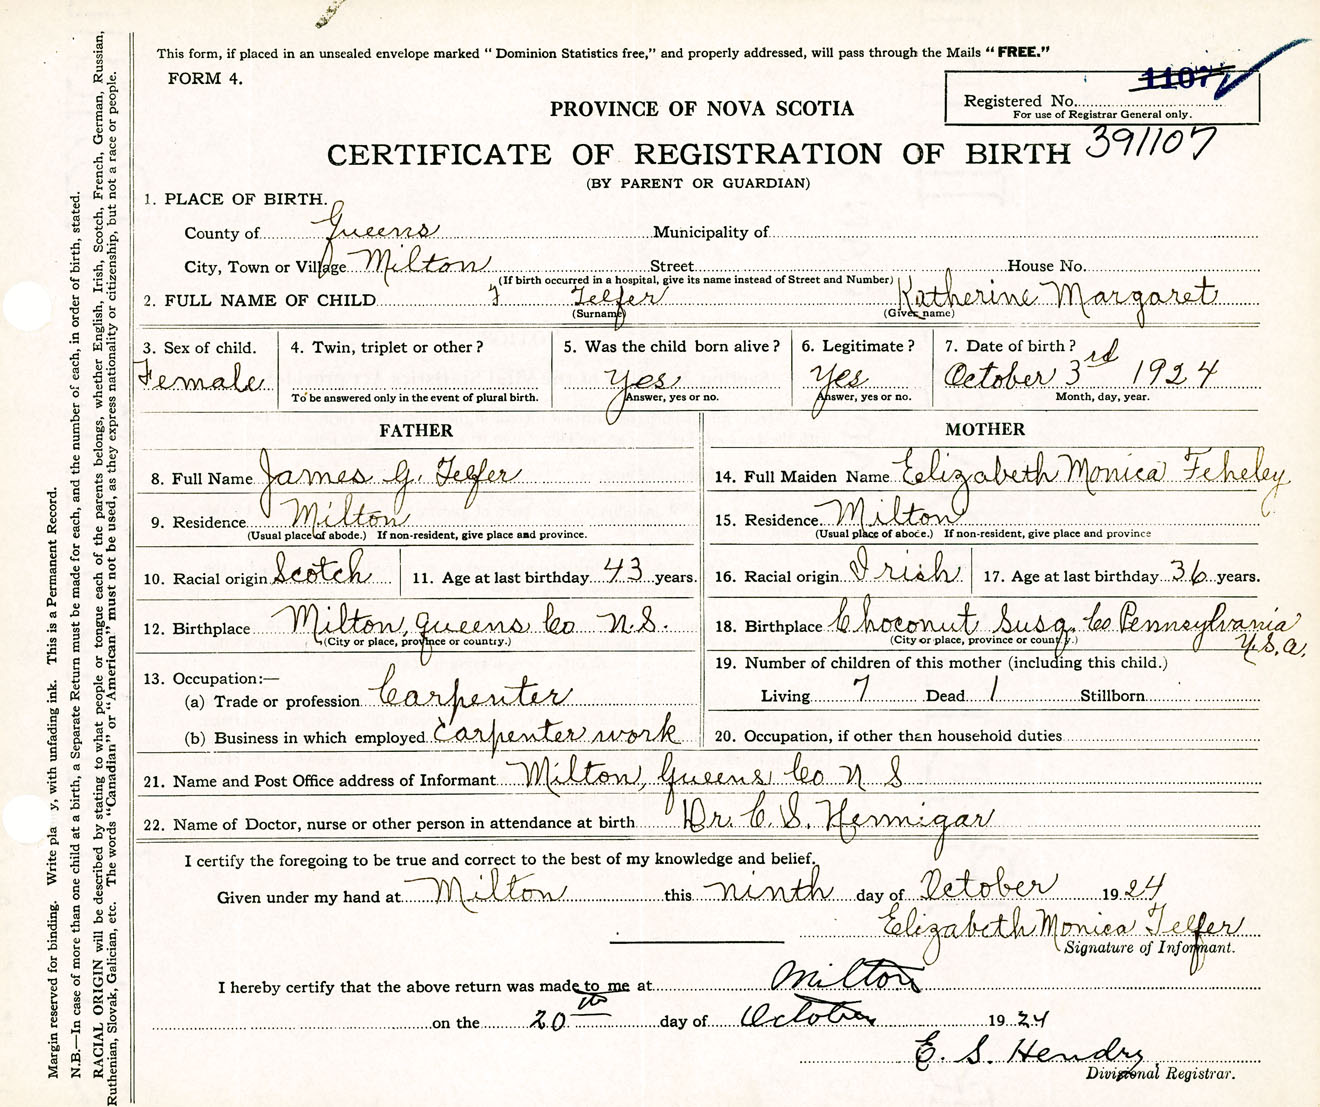 This form, if placed in an unsealed envelope marked "Dominion Statistics free," and properly addressed, will pass through the Mails "FREE."
FORM 4.
1107
Registered No.
For use of Registrar General only.
PROVINCE OF NOVA SCOTIA
391107
CERTIFICATE OF REGISTRATION OF BIRTH
(BY PARENT OR GUARDIAN)
1. PLACE OF BIRTH.
County of Queens Municipality of
City, Town or Village Milton Street House No.
(If birth occurred in a hospital, give its name instead of Street and Number)
2. FULL NAME OF CHILD Telfer Katherine Margaret
(Surname) (Given name)
3. Sex of child. 4. Twin, triplet or other? 5. Was the child born alive? 6. Legitimate? 7. Date of birth?
Female Yes Yes October 3rd 1924
To be answered only in the event of plural birth. Answer, yes or no. Answer, yes or no. Month, day, year.
FATHER MOTHER
8. Full Name James G. Telfer 14. Full Maiden Name Elizabeth Monica Feheley
9. Residence Milton 15. Residence Milton
(Usual place of abode.) If non-resident, give place and province. (Usual place of abode.) If non-resident, give place and province
10. Racial origin Scotch 11. Age at last birthday 43 years. 16. Racial origin Irish 17. Age at last birthday 36 years.
12. Birthplace Milton, Queens Co N.S. 18. Birthplace Choconut Susq. Co Pennsylvania U.S.A.
(City or place, province or country.) (City or place, province or country.)
19. Number of children of this mother (including this child.)
13. Occupation:—
(a) Trade or profession Carpenter Living 7 Dead 1 Stillborn
(b) Business in which employed Carpenter work 20. Occupation, if other than household duties
21. Name and Post Office address of Informant Milton, Queens Co N S
22. Name of Doctor, nurse or other person in attendance at birth Dr. C. S. Hennigar
I certify the foregoing to be true and correct to the best of my knowledge and belief.
Given under my hand at Milton this ninth day of October 1924
Elizabeth Monica Telfer
Signature of Informant.
I hereby certify that the above return was made to me at Milton
on the 20th day of October 1924
E. S. Hendry
Divisional Registrar.
Margin reserved for binding. Write plainly, with unfading ink. This is a Permanent Record.
N.B.—In case of more than one child at a birth, a Separate Return must be made for each, and the number of each, in order of birth, stated.
RACIAL ORIGIN will be described by stating to what people or tongue each of the parents belongs, whether English, Irish, Scotch, French, German, Russian,
Ruthenian, Slovak, Galician, etc. The words "Canadian" or "American" must not be used, as they express nationality or citizenship, but not a race or people.